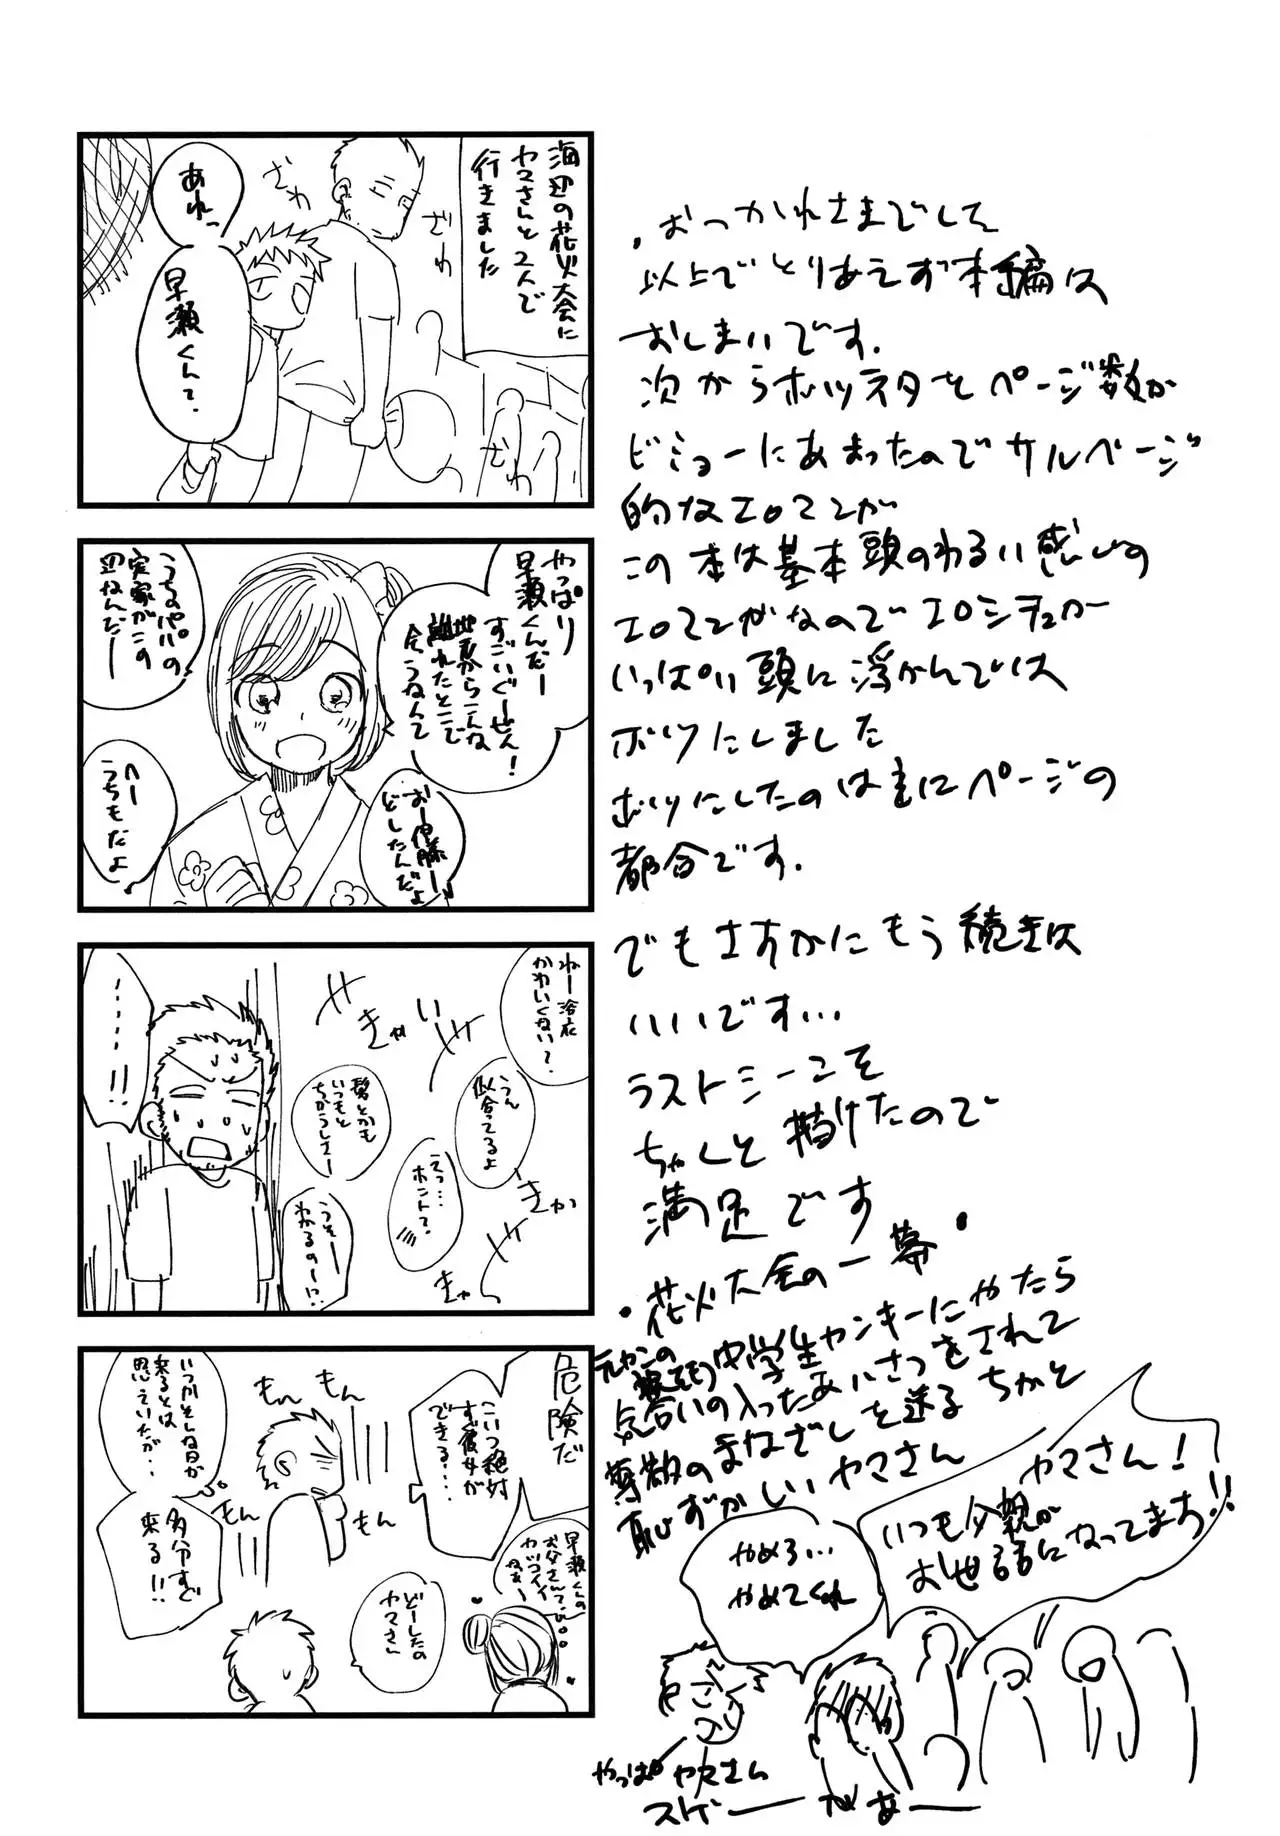 海辺の花火大会に
ヤマさんと2人で
行きました
ざわ
ざわ
ざわ
あれっ
早瀬くんて.
やっぱり
早瀬くんだー
すごいぐーぜん!
地元からこんな
離れたとこで
会うなんて
おー伊藤ー
どしたんだよ
うちのパパの
実家がこの
辺なんだー
へー
うちもだよ
ねー浴衣
かわいくない?
うん
似合ってるよ
髪とかも
いつもと
ちがうしさー
えっ…
ホント?
うそー
わかるのー!?
きゃ
い
きゃ
きゃ
……!!
危険だ
こいつ絶対
すぐ彼女が
できる….
もん
もん
もん
もん
いつかそんな日が
来るとは
思っていたが…
多分すぐ
来る!!
早瀬くんの
お父さんて
カッコイイ
ねぇー
どーしたの
ヤマさん
・おつかれさまでして
以上でとりあえず本編は
おしまいです.
次からボツネタをページ数が
ビミョーにあまったのでサルベージ
的なエロマンガ
この本は基本頭のわるい感じの
エロマンガなのでエロシチュが
いっぱい頭に浮かんでは
ボツにしました
ボツにしたのは主にページの
都合です.
でもさすがにもう続きは
いいです…
ラストシーンこそ
ちゃんと描けたので
満足です
・花火大会の一幕・
元ヤンの
中学生ヤンキーにやたら
気合いの入ったあいさつをされて
尊敬のまなざしを送るちかと
恥ずかしいヤマさん
ヤマさん!
いつも父親が
お世話になってます!!
やめろ…
やめてくれ
やっぱヤマさん
スゲーがあー